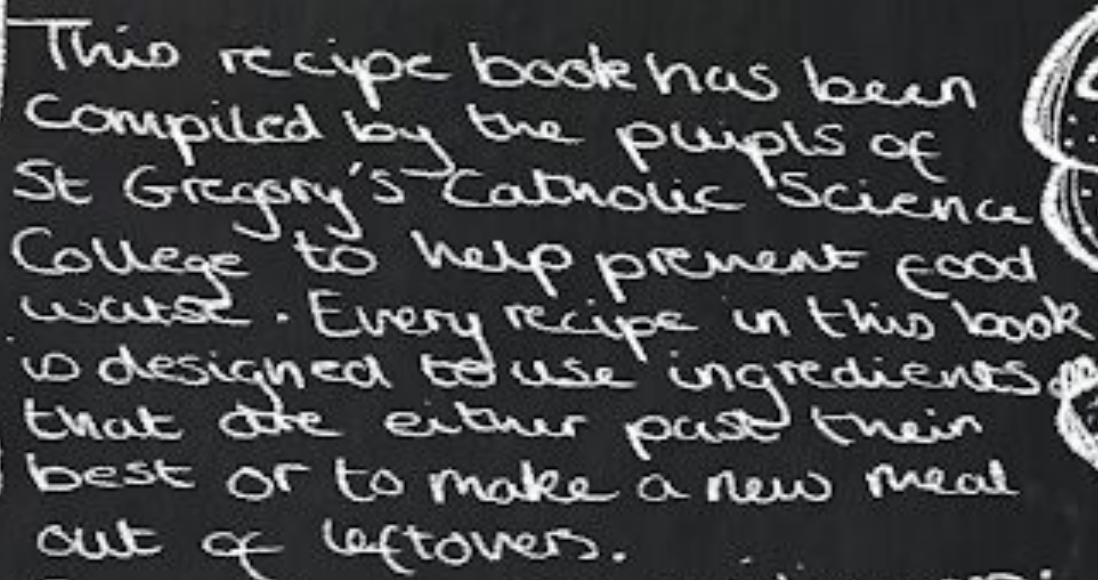 This recipe book has been
compiled by the puipls of
St Gregory's Catholic Science
College to help prevent food
watse. Every recipe in this book
is designed to use ingredients
that are either past their
best or to make a new meal
out of leftovers.